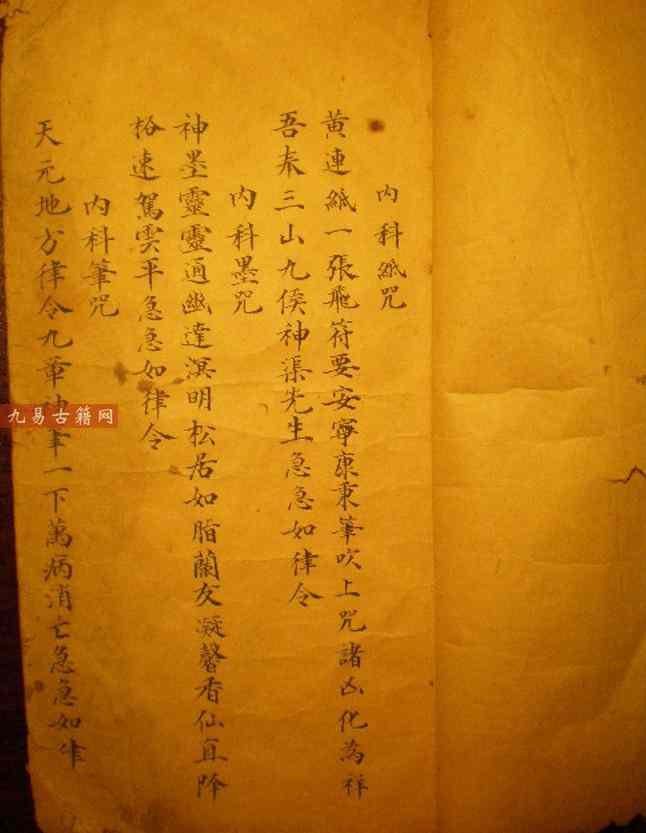 内科紙咒
黄連紙一張飛符要安寧康秉筆吹上咒諸凶化為祥
吾奉三山九侯神渠先生急急如律令
内科墨咒
神墨靈靈通幽達溟明松居如脂蘭友凝馨香仙直降
格速駕雲平急急如律令
内科筆咒
天元地方律令九章筆一下萬病消亡急急如律
九易古籍网